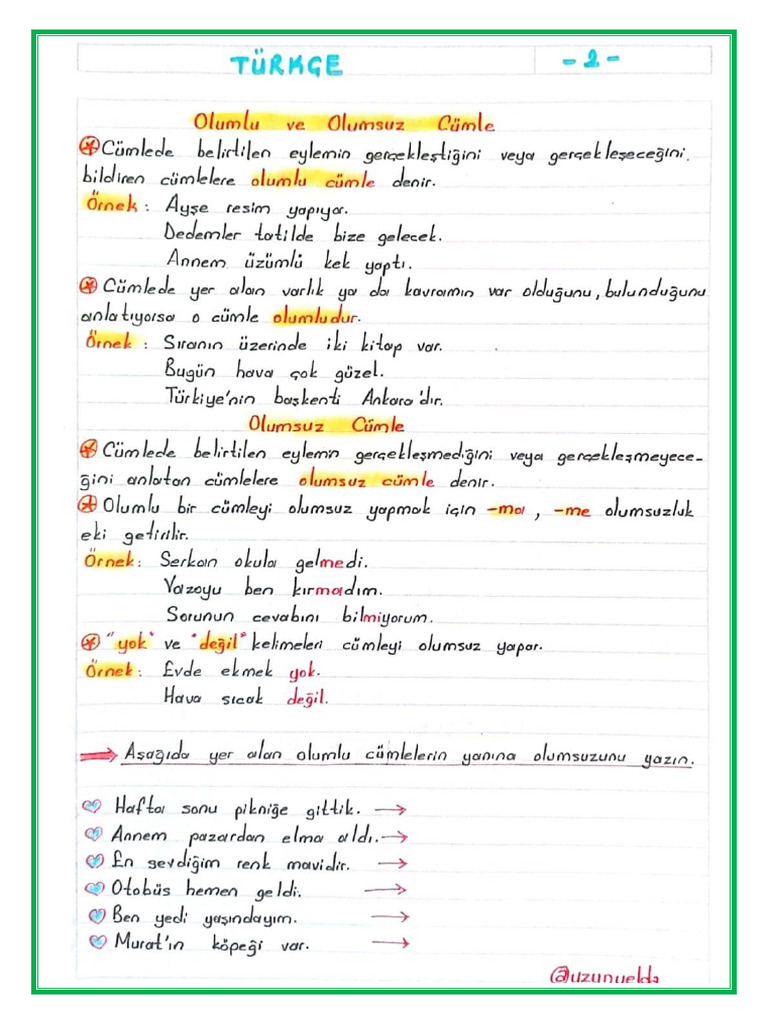 TÜRKÇE
-2-
Olumlu ve Olumsuz Cümle
Cümlede belirtilen eylemin gerçekleştiğini veya gerçekleşeceğini
bildiren cümlelere olumlu cümle denir.
Örnek: Ayşe resim yapıyor.
Dedemler tatilde bize gelecek.
Annem üzümlü kek yaptı.
Cümlede yer alan varlık ya da kavramın var olduğunu, bulunduğunu
anlatıyorsa o cümle olumludur.
Örnek: Sıranın üzerinde iki kitap var.
Bugün hava çok güzel.
Türkiye'nin başkenti Ankara'dır.
Olumsuz Cümle
Cümlede belirtilen eylemin gerçekleşmediğini veya gerçekleşmeyece-
ğini anlatan cümlelere olumsuz cümle denir.
Olumlu bir cümleyi olumsuz yapmak için -ma, -me olumsuzluk
eki getirilir.
Örnek: Serkan okula gelmedi.
Vazoyu ben kırmadım.
Sorunun cevabını bilmiyorum.
"yok" ve "değil" kelimeleri cümleyi olumsuz yapar.
Örnek: Evde ekmek yok.
Hava sıcak değil.
Aşağıda yer alan olumlu cümlelerin yanına olumsuzunu yazın.
Hafta sonu pikniğe gittik. →
Annem pazardan elma aldı. →
En sevdiğim renk mavidir. →
Otobüs hemen geldi. →
Ben yedi yaşındayım. →
Murat'ın köpeği var. →
@uzunyelda